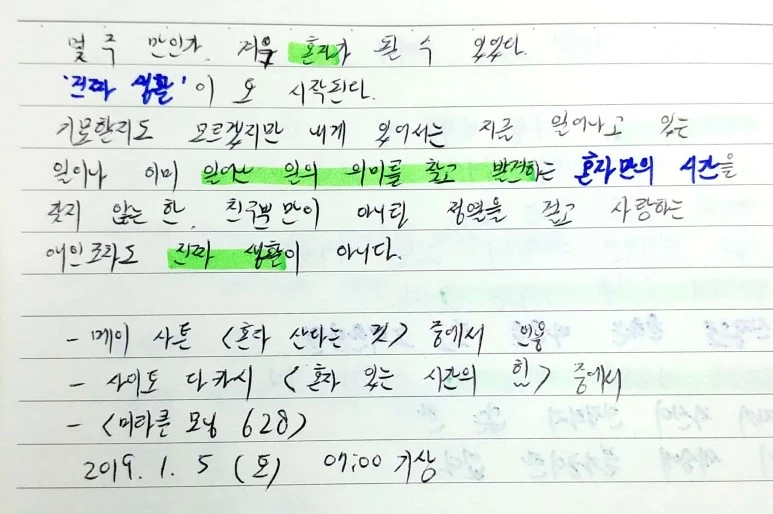 몇 주 만인가. 겨우 혼자가 될 수 있었다.
'진짜 생활'이 또 시작된다.
기묘할지도 모르겠지만 내게 있어서는 지금 일어나고 있는
일이나 이미 일어난 일의 의미를 찾고 발견하는 혼자만의 시간을
갖지 않는 한, 친구뿐만이 아니라 정열을 걸고 사랑하는
애인조차도 진짜 생활이 아니다.
- 메이 사튼 <혼자 산다는 것> 중에서 인용
- 사이토 다카시 <혼자 있는 시간의 힘> 중에서
- <미라클 모닝 628>
2019. 1. 5 (토) 07:00 기상